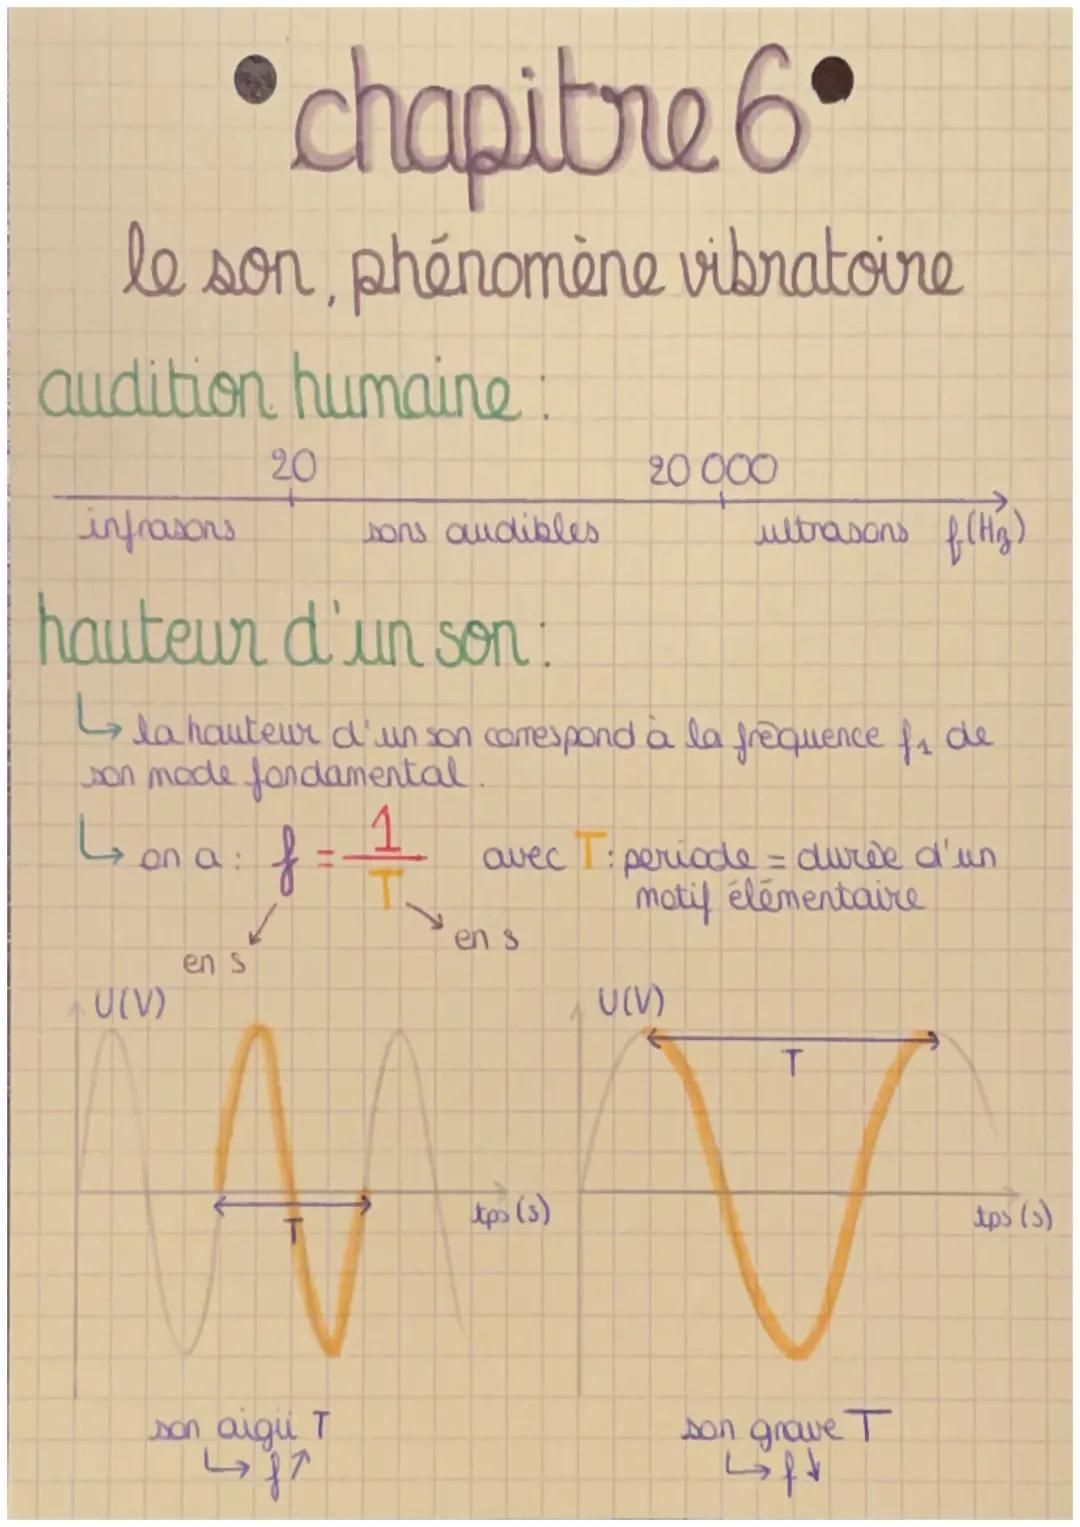 • chapitre 6 •
le son, phénomène vibratoire
audition humaine :
20 20 000
infrasons sons audibles ultrasons f(Hz)
hauteur d'un son :
↳ la hauteur d'un son correspond à la fréquence f₁ de
son mode fondamental.
↳ on a : f = 1/T avec T : periode = durée d'un
motif élémentaire
en s en s
U(V) U(V)
T
tps (s) tps (s)
T
son aigü T son grave T
↳ f↗ ↳ f↓